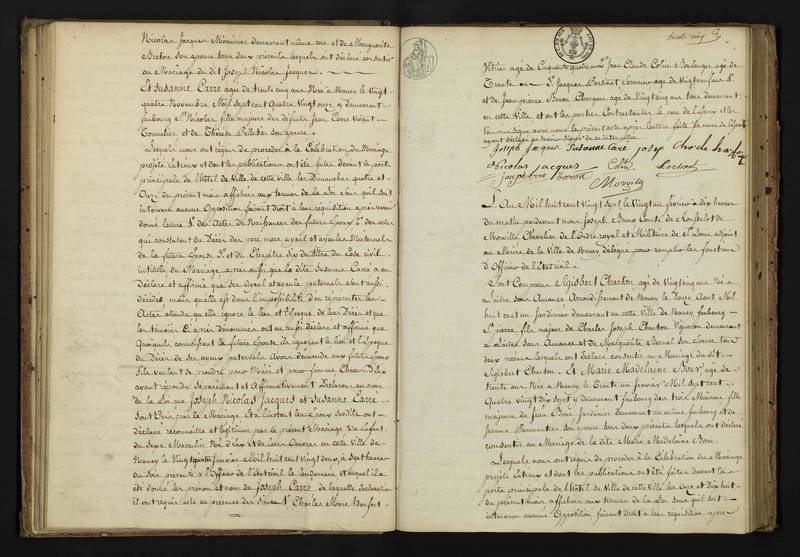 Nicolas Jacques Menuisier demeurant même rue et de Marguerite
Breton son épouse tous deux présents lesquels ont déclaré consentir
au Mariage du dit Joseph Nicolas Jacques.
Et Susanne Carré agée de trente cinq ans Née à Nancy le vingt
quatre Novembre Mil sept cent Quatre vingt onze y demeurant
faubourg St Nicolas fille majeure des défunts Jean Carré vivant
Tonnelier et de Thérèse Pelletier son épouse.
Lesquels nous ont requis de procéder à la Célébration du Mariage
projeté entre eux et dont les publications ont été faites devant la porte
principale de l'hôtel de Ville de cette ville les Dimanches quatre et
Onze du présent mois affichées aux termes de la Loi sans qu'il soit
intervenu aucune Opposition faisant droit à leur réquisition après avoir
donné lecture 1° des Actes de Naissances des futurs époux 2° des actes
qui constatent les Décès des père mère ayeul et ayeule Maternels
de la future Épouse 3° et du Chapitre six du titre du Code civil
intitulé du Mariage
déclaré et affirmé que ses Ayeul et ayeule paternels sont aussi
décédés, mais qu'elle est dans l'impossibilité d'en représenter les
Actes attendu qu'elle ignore le lieu et l'époque de leur Décès et que
les témoins ci après dénommés ont aussi déclaré et affirmé que
Quoiqu'ils connaissent la future épouse ils ignorent le lieu et l'époque
du Décès de ses ayeux paternels Avons demandé aux futurs époux
s'ils veulent se prendre pour Mari et pour femme, chacun d'eux
ayant répondu séparément et affirmativement Déclarons au nom
de la Loi que Joseph Nicolas Jacques et Susanne Carré
sont Unis par le Mariage Et à l'instant les époux susdits ont
déclaré reconnaître et légitimer par le présent Mariage Un enfant
du Sexe Masculin Né d'eux et de leurs Œuvres en cette Ville de
Nancy le Janvier Mil huit cent vingt deux à sept heures
du soir présenté à l'Officier de l'état civil le lendemain et auquel il a
été donné les prénom et nom de Joseph Carré de laquelle déclaration
il ont requis acte en présence des Sieurs 1° Charles Marie
trente cinq
agé de Cinquante quatre ans 2° Jean Claude Colin Boulanger agé de
Trente ans 3° Jacques agé de vingt neuf ans 4°
et de Jean pierre Baron agé de vingt cinq ans tous demeurant
en cette Ville et ont les parties Contractantes le père de l'époux et les
témoins signé avec nous le présent acte après lecture faite la mère de l'époux
ayant déclaré ne savoir signer de ce interpellée
Joseph Jacques Susanne Carré
Nicolas Jacques Colin
baron
Morville
L'An Mil huit cent vingt sept, le Vingt un février à dix heures
du matin pardevant nous Joseph Comte de
Morville Chevalier de l'Ordre royal et Militaire de St Louis adjoint
au Maire de la Ville de Nancy délégué pour remplir les fonctions
d'Officier de l'état civil.
Sont Comparus Sigisbert Charton agé de vingt cinq ans Né à
Laître sous Amance Arrondissement de Nancy le Douze Août Mil
huit cent un Jardinier demeurant en cette Ville de Nancy, faubourg
St pierre fils majeur de Charles Joseph Charton Vigneron demeurant
à Laître sous Amance et de Marguerite son épouse tous
deux présents lesquels ont déclaré consentir au Mariage du dit
Sigisbert Charton. Et Marie Madelaine agée de
trente ans Née à Nancy, le trente un janvier Mil sept cent
Quatre vingt dix sept y demeurant faubourg des trois Maisons fille
majeure de Jean Jardinier demeurant au même faubourg et de
Jeanne Parmentier son épouse tous deux présents lesquels ont déclaré
consentir au Mariage de la dite Marie Madelaine
Lesquels nous ont requis de procéder à la Célébration du Mariage
projeté entre eux et dont les publications ont été faites devant la
porte principale de l'hôtel de Ville de cette Ville les Onze et Dix huit
du présent mois affichées aux termes de la Loi sans qu'il soit
intervenu aucune Opposition faisant droit à leur réquisition après